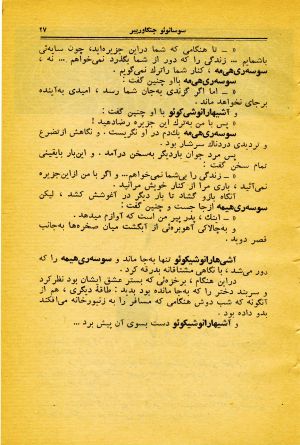 سوسانوئو جنگاورپیر ۲۷
« ـ تا هنگامی که شما دراین جزیره‌اید، چون سایه‌ئی
باشمایم ... زندگی را که دور از شما بگذرد نمی‌خواهم ... نه ،
سوسه‌ری‌هی‌مه ، کنار شما راترك نمی‌گویم .
« ـ اما اگر گزندی به‌جان شما رسد ، امیدی به‌آینده
برجای نخواهد ماند .
و آشیهارانوشی‌کوئو با او چنین گفت :
« ـ پس با من به‌ترك این جزیره رضادهید !
سوسه‌ری‌هی‌مه یك‌دم در او نگریست . و نگاهش ازتضرع
و تردیدی دردناك سرشار بود .
پس مرد جوان باردیگر به‌سخن درآمد . و این‌بار بایقینی
تمام سخن گفت :
« ـ زندگی را بی‌شما نمی‌خواهم... و اگر با من ازاین‌جزیره
نمی‌آئید ، باری مرا از کنار خویش مرانید .
آنگاه بازو گشاد تا بار دیگر در آغوشش کشد ، لیکن
سوسه‌ری‌هیمه ازجا جست و چنین گفت :
« ـ اینك ، پدر پیر من است که آوازم میدهد .
و به‌چالاکی آهوبره‌ئی از انگشت میان صخره‌ها به‌جانب
قصر دوید .
آشی‌هارانوشیکوئو تنها به‌جا ماند و سوسه‌ری‌هیمه را که
دور می‌شد ، با نگاهی مشتاقانه بدرقه کرد .
دراین هنگام ، برخزه‌ئی که بستر عشق ایشان بود نظرکرد
و سربند دختر را که به‌جا مانده بود بدید : طاقهٔ دیگری ، هم از
آنگونه که شب دوش هنگامی که مسافر را به زنبورخانه می‌افکند
بدو داده بود .
و آشیهارانوشیکوئو دست بسوی آن پیش برد ...